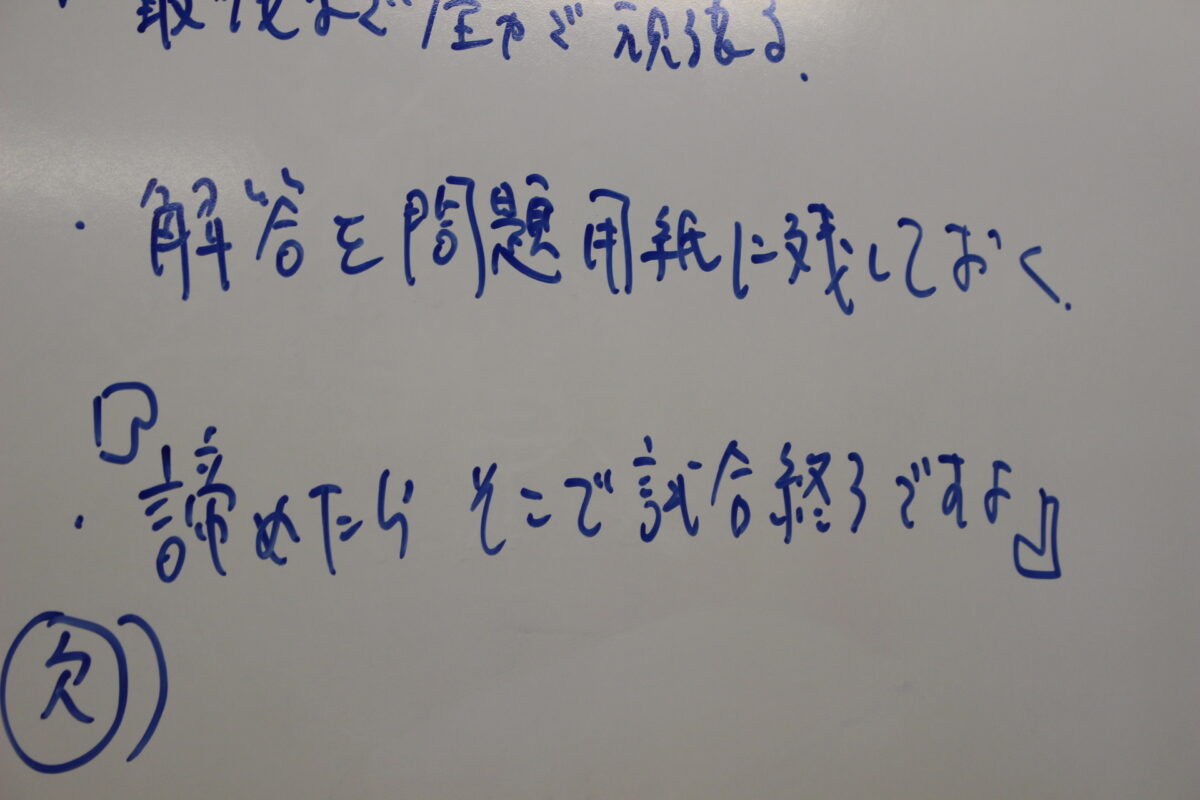 最後まで全力で頑張る.
・解答を問題用紙に残しておく.
・『諦めたら そこで試合終了ですよ』
欠))